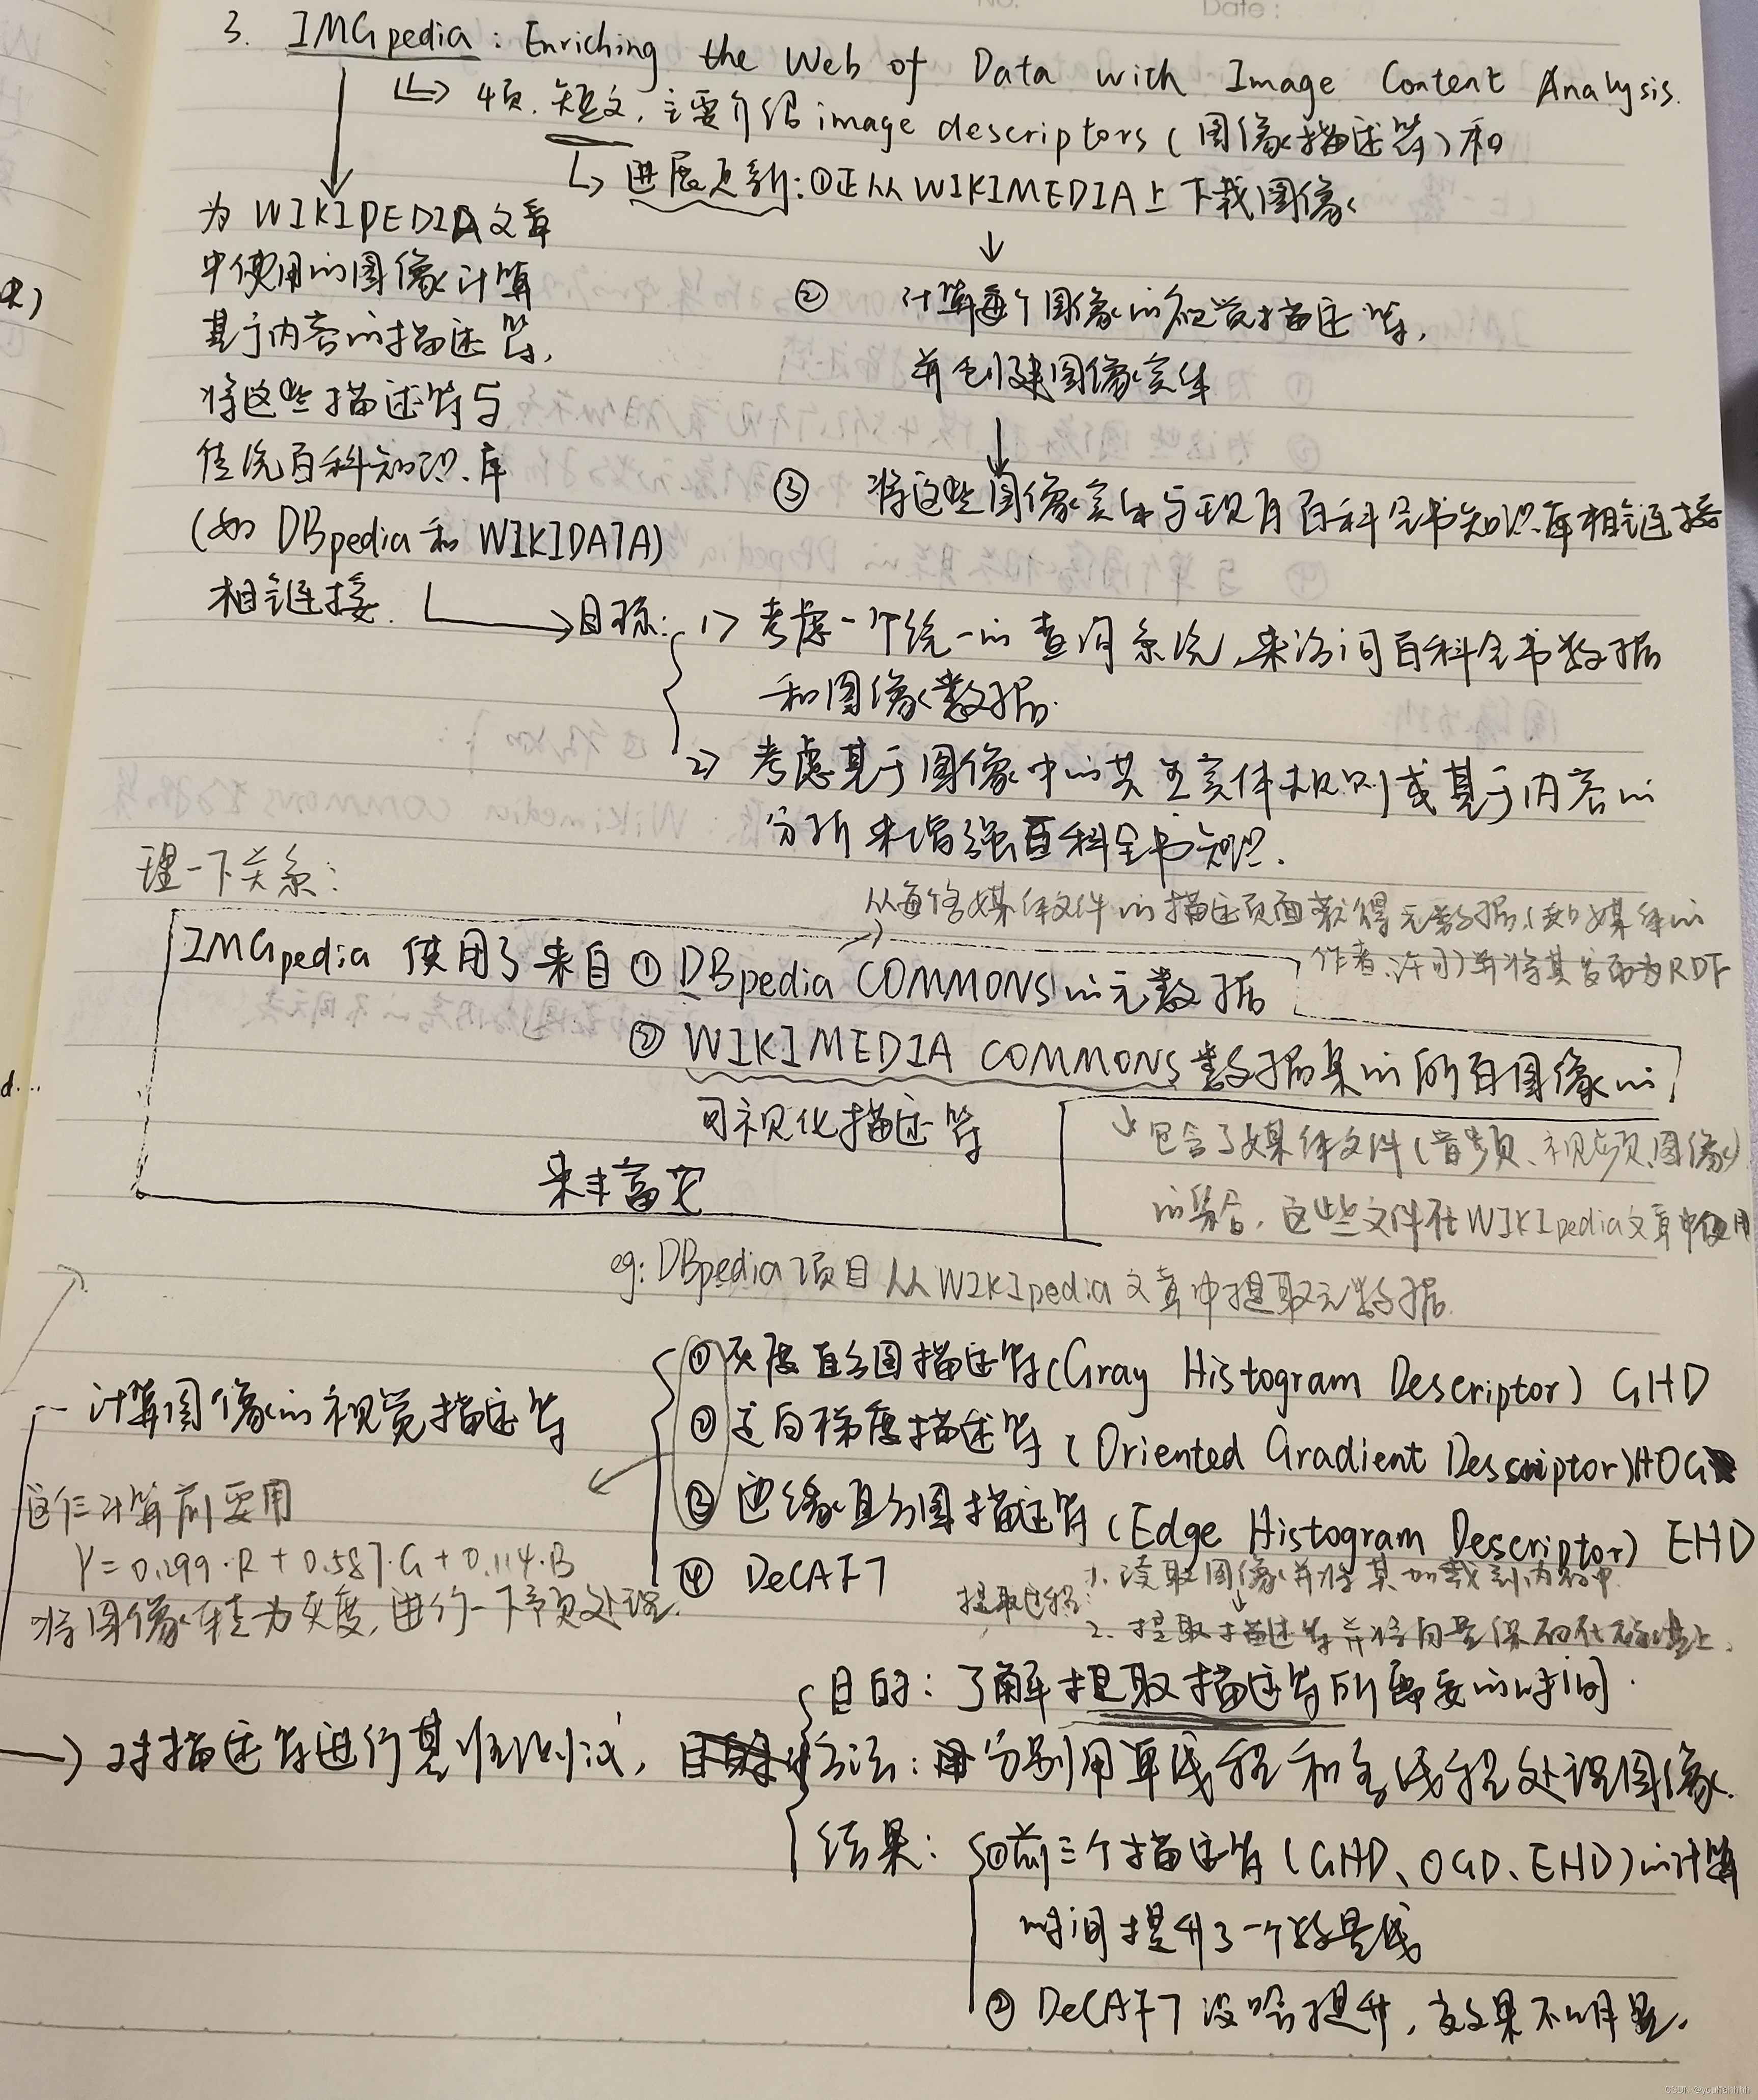 Date:
3. IMGpedia: Enriching the Web of Data with Image Content Analysis.
4页.短文,主要介绍image descriptors(图像描述符)和
进展更新:①正从WIKIMEDIA上下载图像
为WIKIPEDIA文章
中使用的图像计算
基于内容的描述符,
将这些描述符与
传统百科知识库
(如DBpedia和WIKIDATA)
相链接.
② 计算每个图像的视觉描述符,
并创建图像实体
③ 将这些图像实体与现有百科全书知识库相链接
目标: 1> 考虑一个统一的查询系统,来访问百科全书数据
和图像数据.
2> 考虑基于图像中的共至实体规则或基于内容的
分析来增强百科全书知识.
理一下关系:
从每个媒体文件的描述页面获得元数据(如媒体的
作者、许可)并将其发布为RDF
IMGpedia 使用了来自①DBpedia COMMONS的元数据
② WIKIMEDIA COMMONS数据集的所有图像的
可视化描述符
来丰富它
包含了媒体文件(音频、视频、图像)
的集合,这些文件在WIKIpedia文章中使用
eg: DBpedia项目从WIKIpedia文章中提取元数据.
计算图像的视觉描述符
①灰度直方图描述符(Gray Histogram Descriptor) GHD
②定向梯度描述符(Oriented Gradient Descriptor)HOG
③边缘直方图描述符(Edge Histogram Descriptor) EHD
④ DeCAF7
这仨计算前要用
Y=0.299·R+0.587·G+0.114·B
将图像转为灰度,进行一下预处理.
提取过程: 1. 读取图像并将其加载到内存中
2. 提取描述符并将向量保存在磁盘上.
对描述符进行基准测试,
目的: 了解提取描述符所需要的时间.
方法: 分别用单线程和多线程处理图像.
结果: ①前三个描述符(GHD、OGD、EHD)的计算
时间提升了一个数量级
② DeCAF7没啥提升,效果不明显.
CSDN @youhahhhh